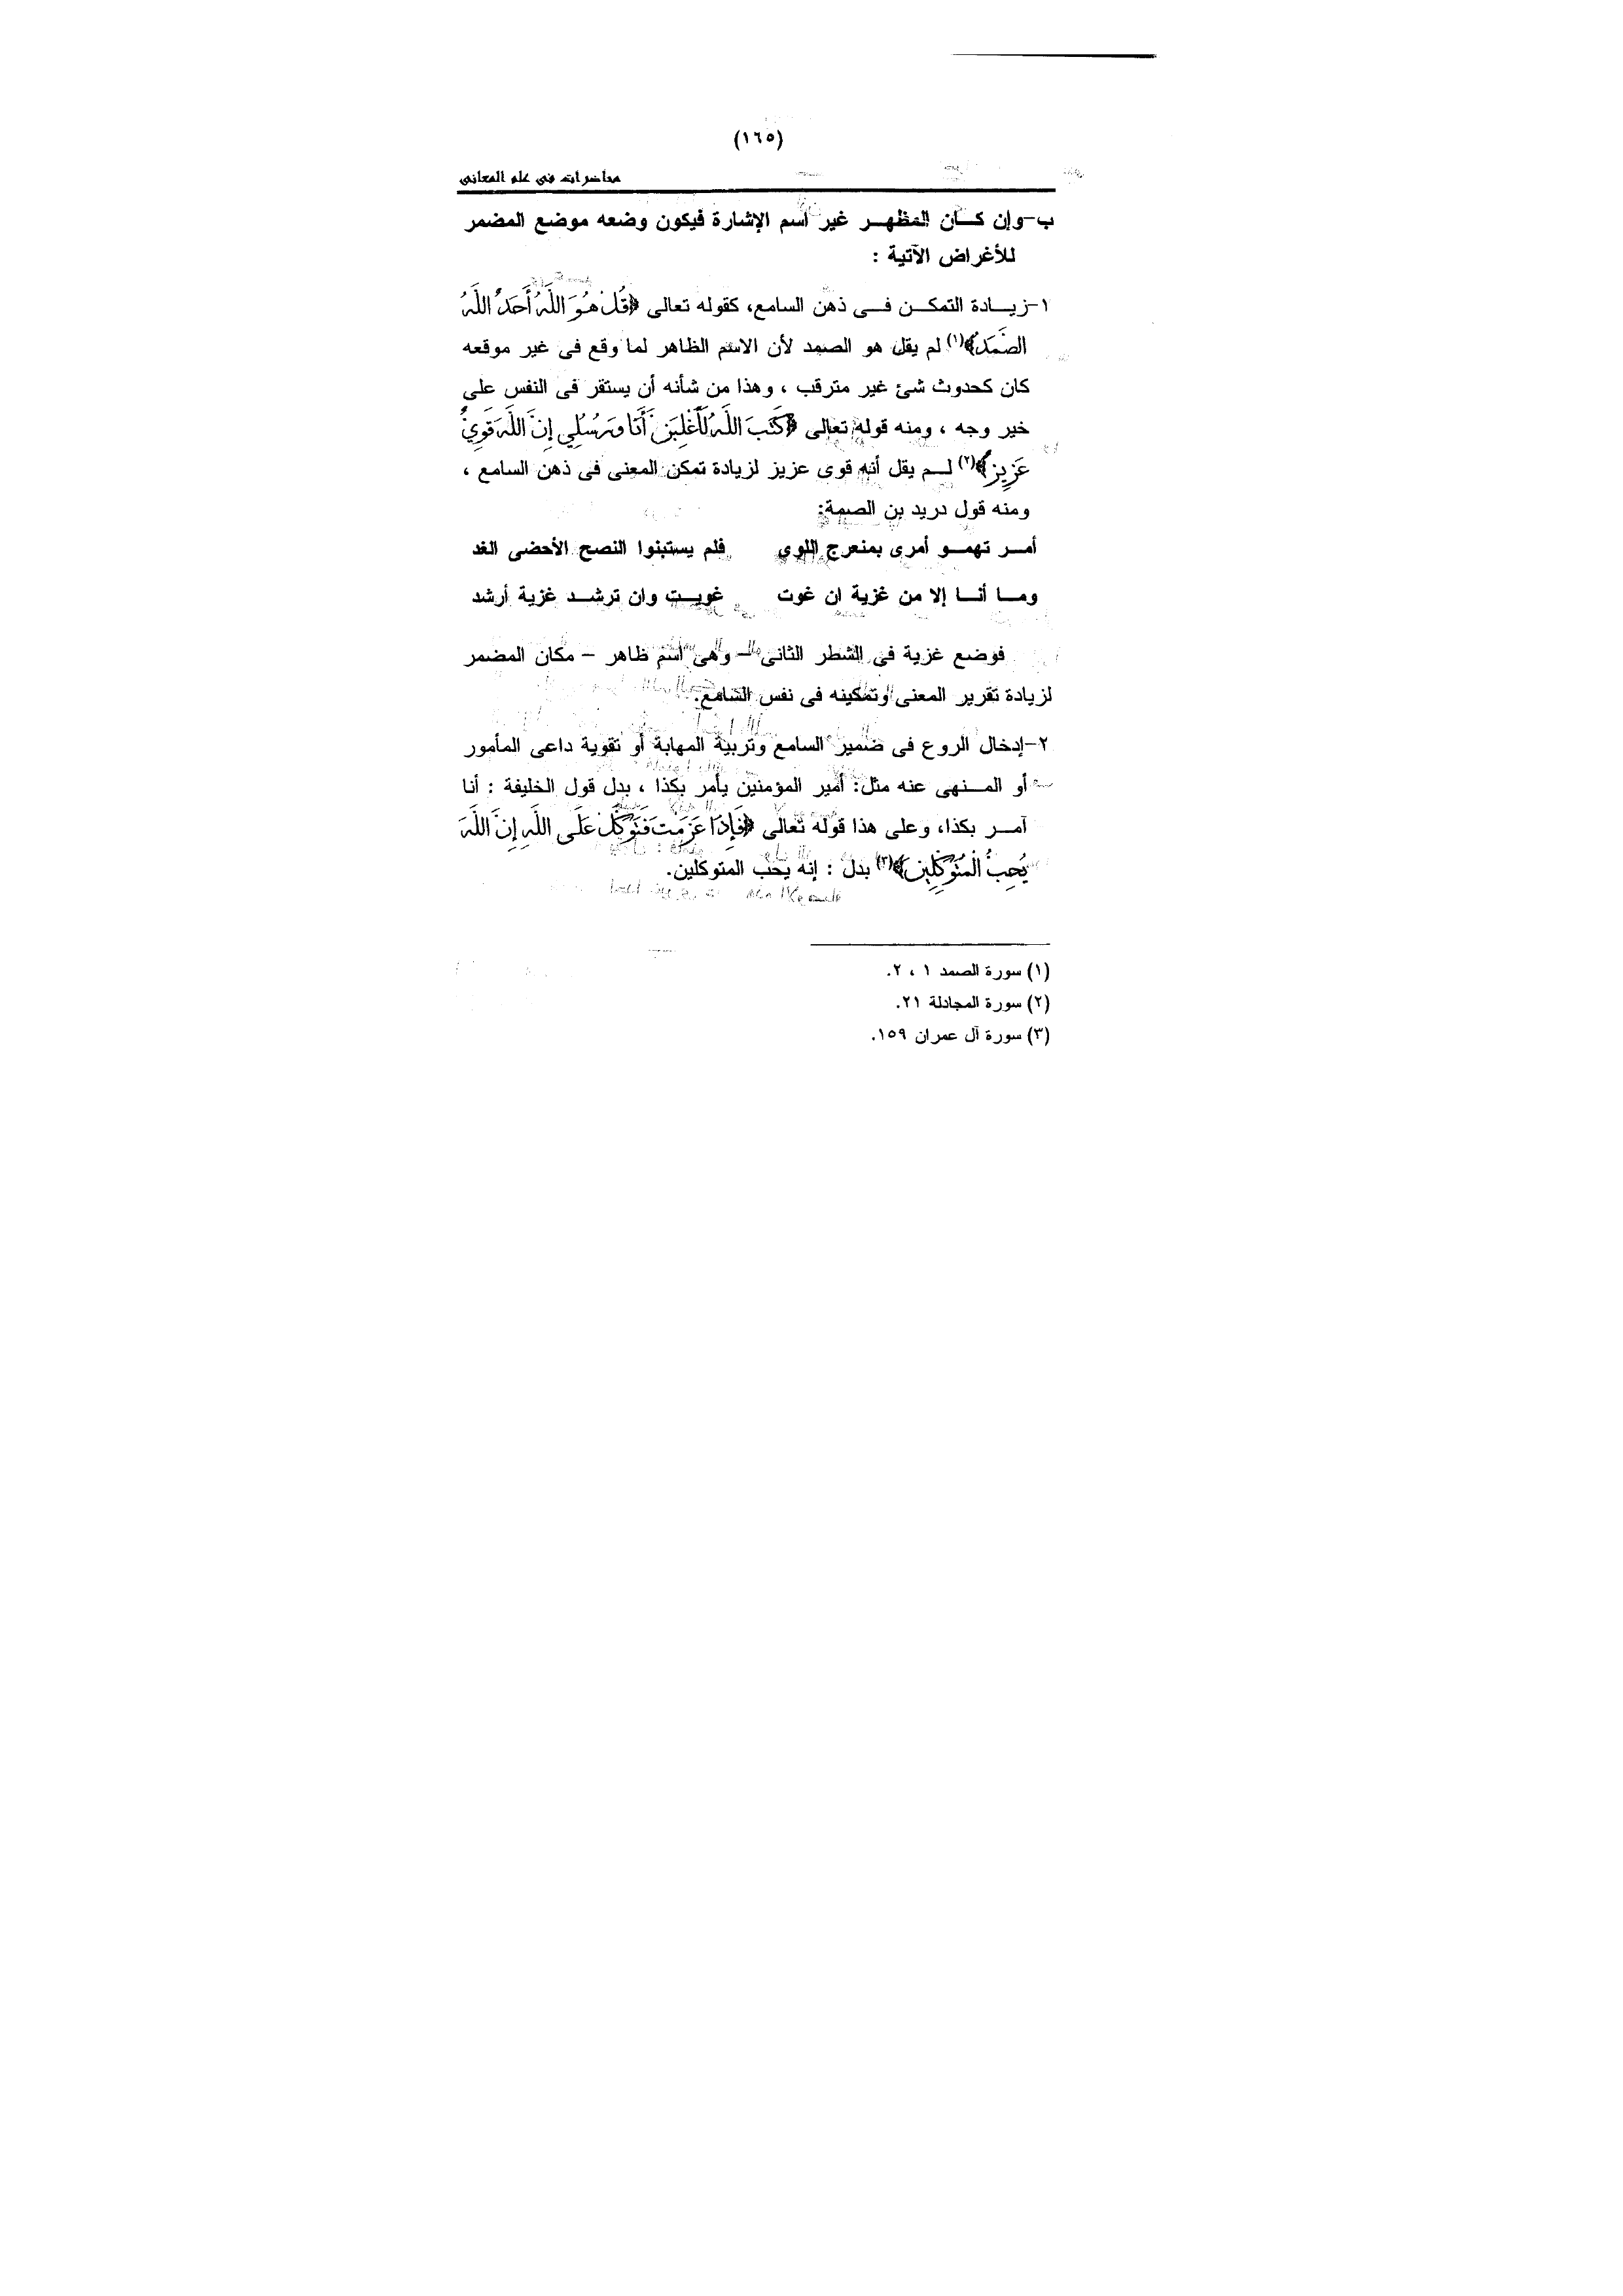 (١٦٥)
محاضرات في علم المعاني
ب-وإن كان المظهر غير اسم الإشارة فيكون وضعه موضع المضمر
للأغراض الآتية :
١-زيادة التمكن فى ذهن السامع، كقوله تعالى ﴿قُلْ هُوَ اللَّهُ أَحَدٌ اللَّهُ
الصَّمَدُ﴾(١) لم يقل هو الصمد لأن الاسم الظاهر لما وقع فى غير موقعه
كان كحدوث شئ غير مترقب ، وهذا من شأنه أن يستقر فى النفس على
خير وجه ، ومنه قوله تعالى ﴿كَتَبَ اللَّهُ لَأَغْلِبَنَّ أَنَا وَرُسُلِي إِنَّ اللَّهَ قَوِيٌّ
عَزِيزٌ﴾(٢) لم يقل أنه قوى عزيز لزيادة تمكن المعنى فى ذهن السامع ،
ومنه قول دريد بن الصمة:
أمر تهمو أمرى بمنعرج اللوي فلم يستبنوا النصح الأحضى الغد
وما أنا إلا من غزية ان غوت غويت وان ترشد غزية أرشد
فوضع غزية فى الشطر الثانى – وهى اسم ظاهر – مكان المضمر
لزيادة تقرير المعنى وتمكينه فى نفس السامع.
٢-إدخال الروع فى ضمير السامع وتربية المهابة أو تقوية داعى المأمور
أو المنهى عنه مثل: أمير المؤمنين يأمر بكذا ، بدل قول الخليفة : أنا
آمر بكذا، وعلى هذا قوله تعالى ﴿فَإِذَا عَزَمْتَ فَتَوَكَّلْ عَلَى اللَّهِ إِنَّ اللَّهَ
يُحِبُّ الْمُتَوَكِّلِينَ﴾(٣) بدل : إنه يحب المتوكلين.
(١) سورة الصمد ١ ، ٢.
(٢) سورة المجادلة ٢١.
(٣) سورة آل عمران ١٥٩.